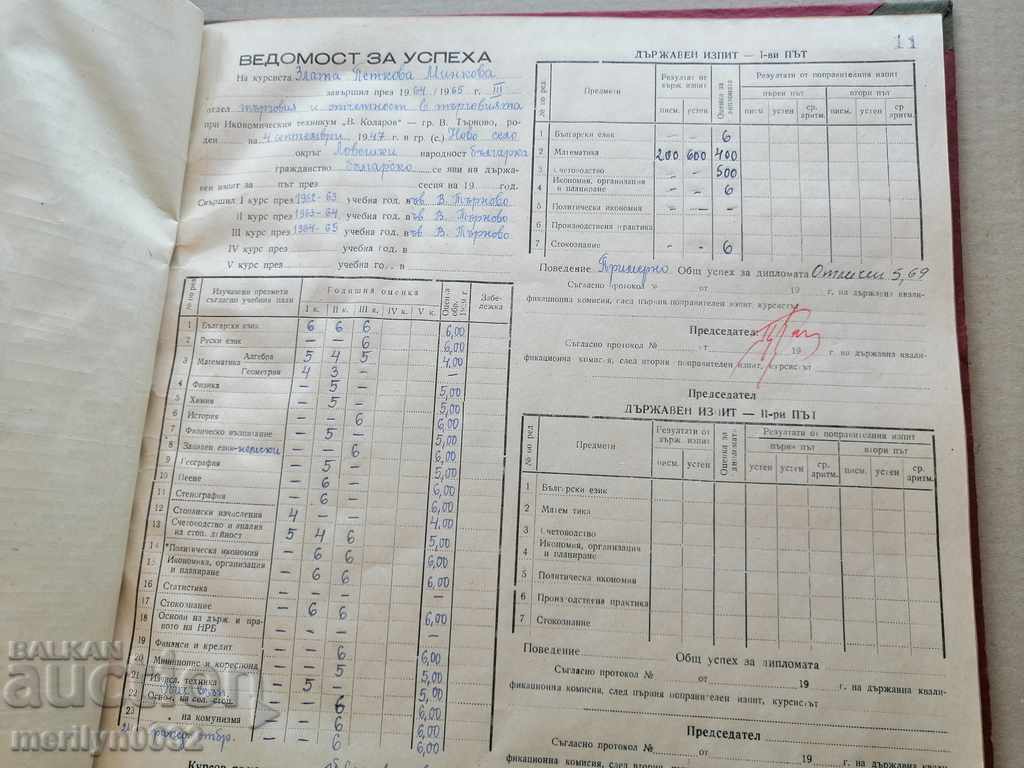 11
ВЕДОМОСТ ЗА УСПЕХА
На курсиста Злата Петкова Минкова
завършил през 1964/1965 г. III
отдел търговия и отчетност в търговията
при Икономическия техникум „В. Коларов“ — гр. В. Търново, ро-
ден на 4 септември 1947 г. в гр. (с.) Ново село
окръг Ловешки народност българка
гражданство българско се яви на държа-
вен изпит за път през сесия на 19 год.
Свършил I курс през 1962-63 учебна год. във В. Търново
II курс през 1963-64 учебна год. във В. Търново
III курс през 1964-65 учебна год. във В. Търново
IV курс през учебна год. в
V курс през учебна год. в
№ по ред Изучавани предмети съгласно учебния план Годишна оценка Оценка Забе-лежка
I к. II к. III к. IV к. V к.
1 Български език 6 6 6 6,00
2 Руски език — — 6 6,00
3 Математика Алгебра 5 4 5 4,00
Геометрия 4 3 — —
4 Физика — 5 — 5,00
5 Химия — 5 — 5,00
6 История — — 6 6,00
7 Физическо възпитание — 5 — 5,00
8 Западен език — немски — — 6 6,00
9 География — 5 — 5,00
10 Пеене — 6 — 6,00
11 Стенография — 6 — 6,00
12 Стопански изчисления 4 — — 4,00
13 Счетоводство и анализ на стоп. дейност 5 4 6 5,00
14 Политическа икономия — 6 6 6,00
15 Икономика, организация и планиране — 6 6 6,00
16 Статистика — — — —
17 Стокознание — 6 6 6,00
18 Основи на държ. и пра-вото на НРБ — — — —
19 Финанси и кредит — — 6 6,00
20 Машинопис и кореспонд. — — 5 5,00
21 Изчисл. техника — 5 — 5,00
22 Основи на соц. стоп. — — 6 6,00
23 „ на комунизма — — 6 6,00
24 търг. — — 6 6,00
ДЪРЖАВЕН ИЗПИТ — I-ви ПЪТ
№ по ред Предмети Резултат от държ. изпит Оценка за дипломата Резултати от поправителния изпит
първи път втори път
писм. устен писм. устен ср. аритм. писм. устен ср. аритм.
1 Български език — — 6
2 Математика 200 600 400
3 Счетоводство — — 500
4 Икономия, организация и планиране — — 6
5 Политическа икономия — —
6 Производствена практика
7 Стокознание — — 6
Поведение Примерно Общ успех за дипломата Отличен 5,69
Съгласно протокол № от 19 г. на държавна квали-
фикационна комисия, след първия поправителен изпит, курсистът
Председател
Съгласно протокол № от 19 г. на държавна квали-
фикационна комисия, след втория поправителен изпит, курсистът
Председател
ДЪРЖАВЕН ИЗПИТ — II-ри ПЪТ
№ по ред Предмети Резултати от държ. изпит Оценка за дипломата Резултати от поправителния изпит
първи път втори път
писм. устен устен устен ср. аритм. писм. устен ср. аритм.
1 Български език
2 Математика
3 Счетоводство
4 Икономия, организация и планиране
5 Политическа икономия
6 Производствена практика
7 Стокознание
Поведение Общ успех за дипломата
Съгласно протокол № от 19 г. на държавна квали-
фикационна комисия, след първия поправителен изпит, курсистът
Председател
Съгласно протокол № от 19 г. на държавна квали-
фикационна комисия, след втория поправителен изпит, курсистът
BALKAN
auction
merilyn0032